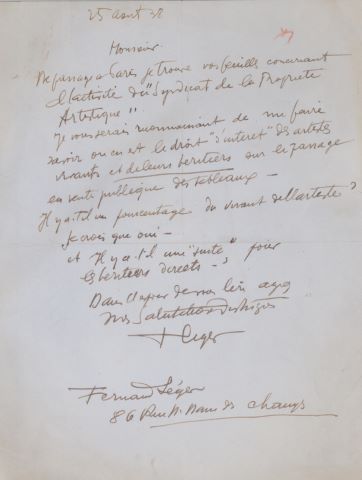 25 aout 38
Monsieur
De passage a Paris je trouve vos feuilles concernant
l'activité du "Syndicat de la Propriete
Artistique"
Je vous serais reconnaissant de me faire
savoir ou en est le droit "d'interet" des artistes
vivants et de leurs heritiers sur le passage
en vente publique des tableaux —
Il y a-t-il un pourcentage du vivant de l'artiste ?
Je crois que oui —
et Il y a-t-il une "suite" pour
les heritiers directs — ?
Dans l'espoir de vous lire
mes Salutations
F Leger
Fernand Léger
86 Rue N. Dame des Champs